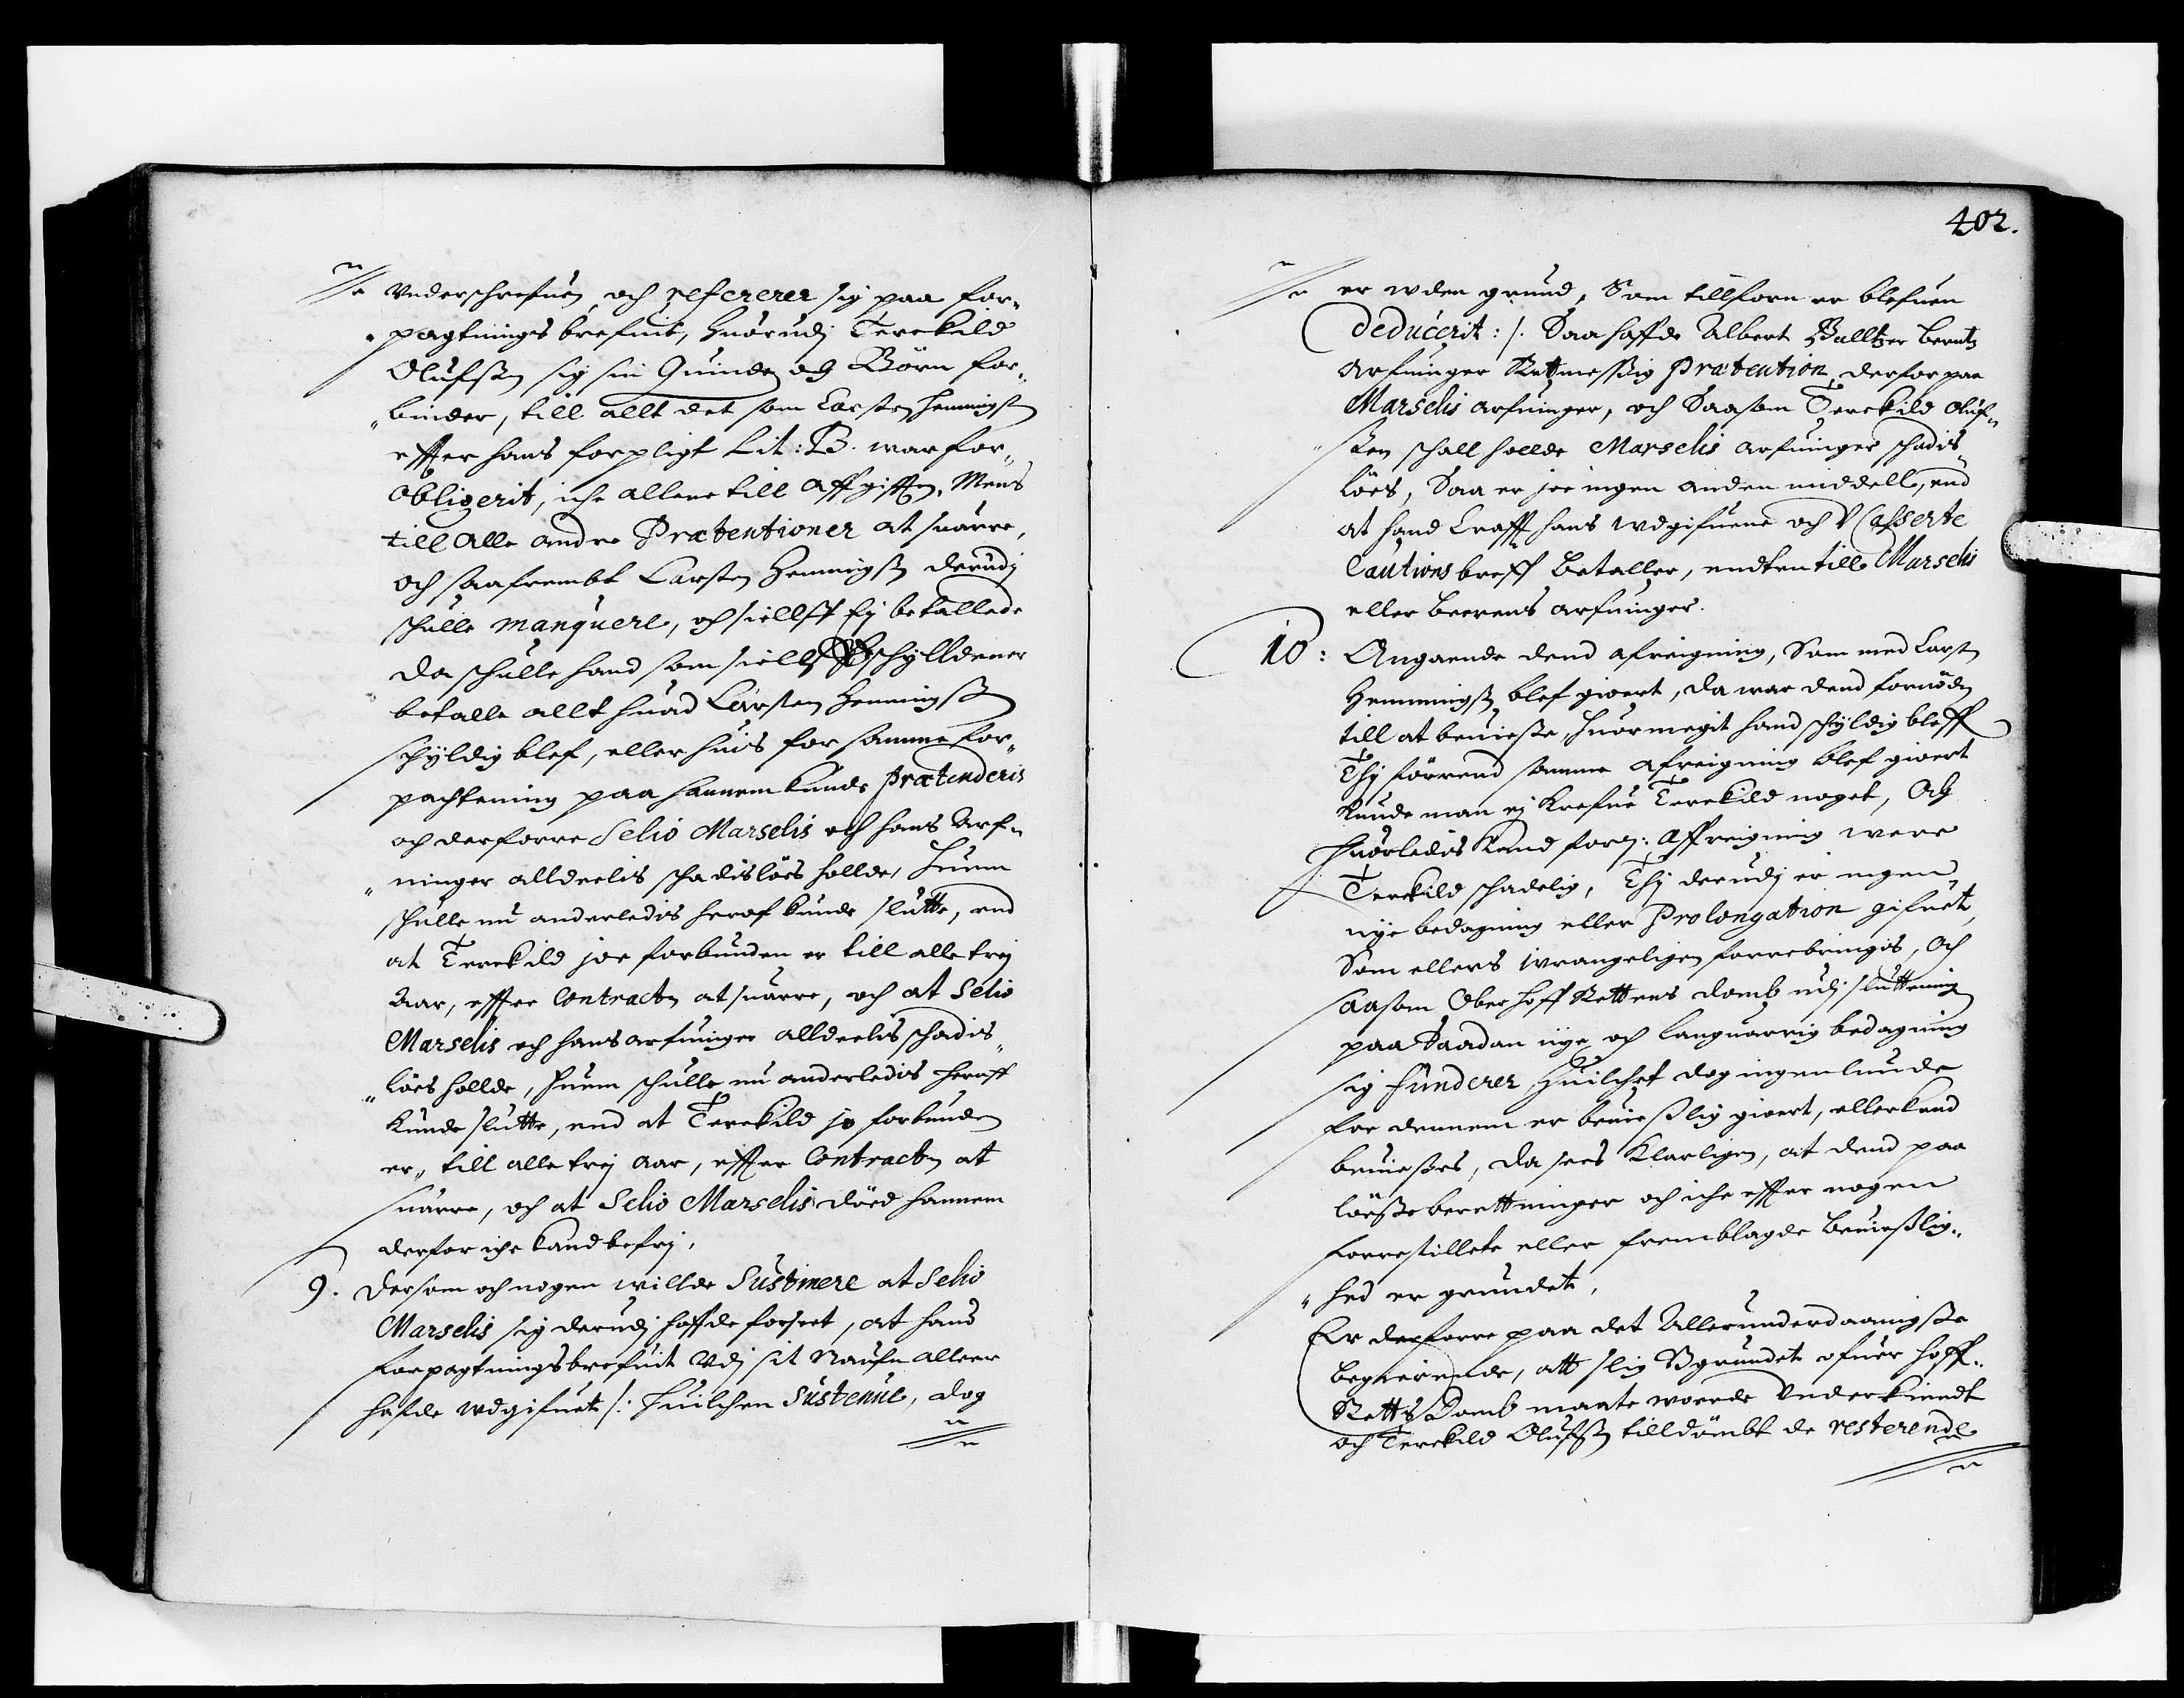 Underschrefuen, och refererer sig paa for„
„pagtnings brefuit, huorudj Terekild
Olufsen sig sin Quinde och Börn for„
„binder, till allt det som Carsten Hemmingsen
effter hans forpligt Lit: B. war for„
obligerit, iche allene till Aff gifften, Mens
till alle andre Prætentioner at suarre,
och saafrembt Carsten Hemmingsen derudj
schulle manquere, och sielff Ej betallede
da schulle hand som sielff schylldener
betalle allt huad Carsten Hemmingsen
schyldig blef, eller huis for samme for„
pachtening paa hannem kunde prætenderis
och derforre Selio Marselis och hans Arf„
„uinger alldeelis schadislöes hollde, huem
schulle nu anderledis heraf kunde slutte, end
at Terekild joe forbunden er till alle trej
Aar, effter Contracten at suarre, och at Selio
Marselis och hans arfuinger alldeelis schadis„
„löes hollde, huem schulle nu anderledis heraff
kunde slutte, end at Terekild jo forbunden
er„ till alle trej Aar, effter Contracten at
suarre, och at Selio Marselis döed hannem
derfor iche kand befrj,
9. Dersom och nogen willde Sustinere at Selio
Marselis sig derudj haffde forseet, at hand
forpagtningsbrefuit Udj sit Naufn alleene
hafde udgifuet /: huilchen Sustenue, dog
402.
er uden grund, Som tillforn er blefuen
deducerit: /. Saa haffde Albert Balltzer Berntz
Arfuinger Retmessig Prætention, derfor paa
Marselis arfuinger, och Saasom Terekild Oluf„
„sen schall hollde Marselis arfuinger schadis„
löes, Saa er joe ingen anden middell, end
at hand Craff hans udgifuene och Casserte
Cautions breff betaller, endten till Marselis
eller Beerens arfuinger.
10: Angaaende dend afreigning, Som med Carsten
Hemmingsen blef giort, da war dend fornöden
till at beuiese, huormegit hand schyldig bleff
Thj förrend samme afreigning blef giort
kunde man ej Krefue Terekild noget, Och
huorledis kand forn: Affreigning were
Terekild schadelig, Thj derudj er ingen
nye bedagning eller Prolongation gifuet,
Som ellers wrangeligen forrebringis, Och
Saasom Oberhoff Rettens domb udj sluttning
paa Saadan nye och languarrig bedagning
sig funderer Huilchet dog ingenlunde
for dennem er beuieslig giort, eller kand
beuieses, da sees Klarligen, at dend paa
löesse berettninger och iche effter nogen
forrestillete eller fremblagde beuieslig„
„hed er grundet,
Er derforre paa det Allerunderdaanigste
begierende, att slig Ugrundet ofuer hoff„
Retts Domb maate worde Underkiendt
och Terekild Olufsen tilldömbt de resterende